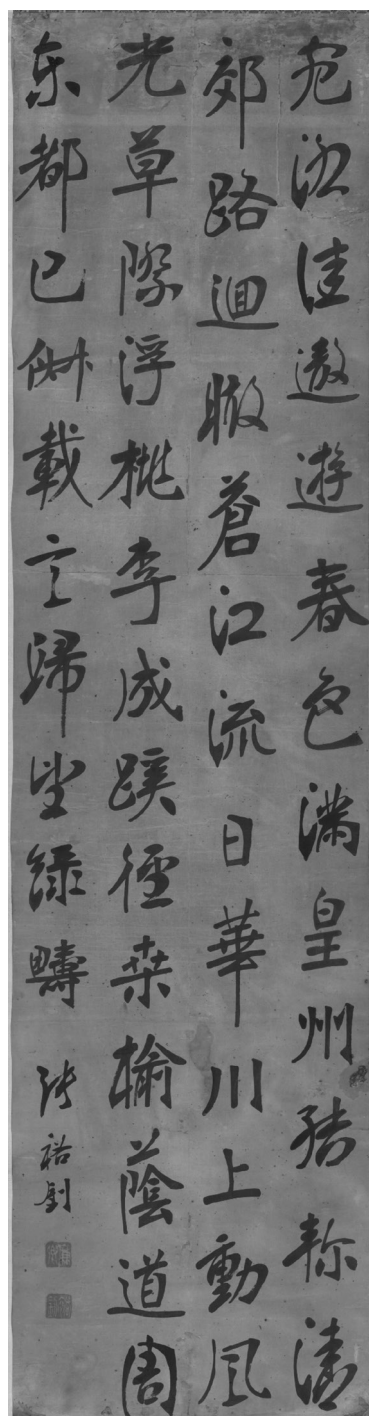 宛洛佳遨遊春色滿皇州結軫清
郊路迴瞰蒼江流日華川上動風
光草際浮桃李成蹊徑桑榆蔭道周
東都已俶載言歸望綠疇 張裕釗